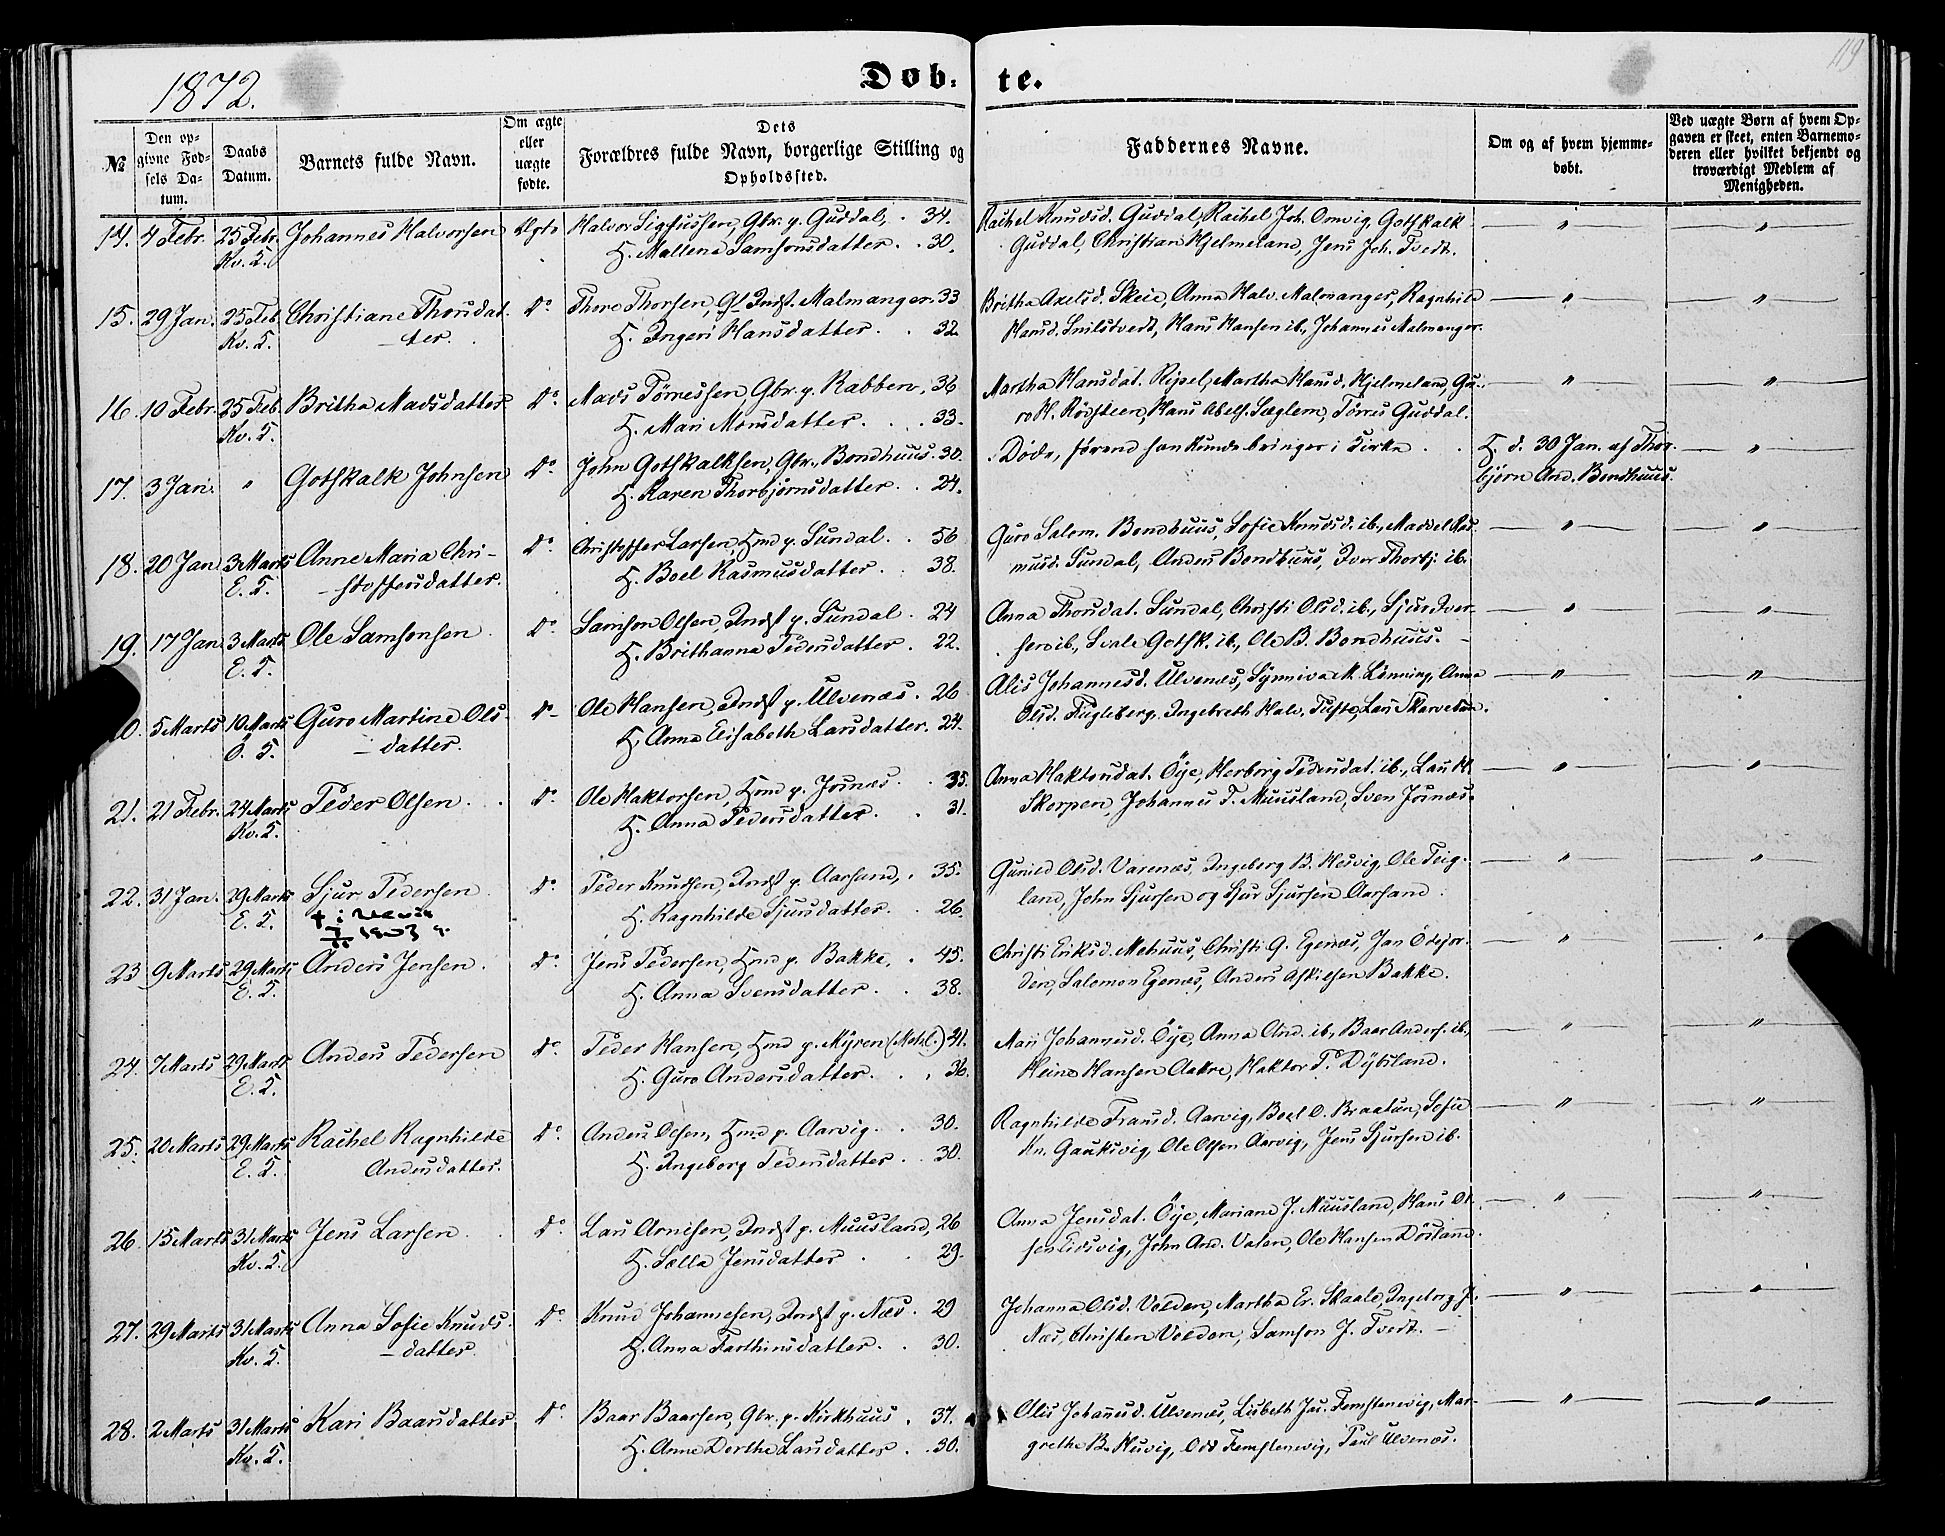 119
1872.
Døb- te.
№
Den opgivne Fødsels Datum.
Daabs Datum.
Barnets fulde Navn.
Om ægte eller uægte fødte.
Dets Forældres fulde Navn, borgerlige Stilling og Opholdssted.
Faddernes Navne.
Om og af hvem hjemmedøbt.
Ved uægte Børn af hvem Opgaven er skeet, enten Barnemoderen eller hvilket bekjendt og troværdigt Medlem af Menigheden.
14. 4 Febr. 25 Febr. Johannes Halvorsen Ægte Halvor Sigfussen, Gbr. p. Guddal, 34. Rachel Knudsd. Guddal, Rachel Joh. Omvig, Gotskalk
Kv. T. H. Mallena Samsonsdatter 30. Guddal, Christian Hjelmeland, Jens Joh. Tvedt.
15. 29 Jan. 25 Feb. Christiane Thorsdat- Do Thore Thorsen, Indst. Malmanger 33 Britha Axelsd. Skeie, Anna Halv. Malmanger, Ragnhild
Kv. T. ter. H. Ingeri Hansdatter 32 Hansd. Snilstvedt, Hans Hansen ib., Johannes Malmanger.
16. 10 Febr. 25 Feb. Britha Madsdatter Do Mads Tørressen, Gbr. p. Rabben, 36 Martha Hansdat. Ripel, Martha Hansd. Hjelmeland, Gu-
Kv. T. H. Mari Monsdatter 33. ro H. Rødsteen, Hans Abels. Sæglem, Tørres Guddal.
17. 3 Jan. " Gotskalk Johnsen Do John Gotskalksen, Gbr. Bondhuus. 30. Døde, førend han kunde bringes i Kirke H. d. 30 Jan. af Thor-
H. Karen Thorbjørnsdatter 24. bjørn And. Bondhuus.
18. 20 Jan. 3 Marts Anne Maria Chri- Do Christoffer Larsen, Hmd p. Sundal. 56 Guro Salom. Bondhuus, Sofie Knudsd. ib., Maddel Ras-
E. T. stoffersdatter. H. Boel Rasmusdatter 38. musd. Sundal, Anders Bondhuus, Iver Thorbj. ib.
19. 17 Jan. 3 Marts Ole Samsonsen Do Samson Olsen, Indst p. Sundal 24 Anna Thorsdat. Sundal, Christi Olsd. ib., Sjur Iver-
E. T. H. Brithanna Pedersdatter 22. sen ib., Svale Gotsk. ib., Ole B. Bondhuus.
0. 5 Marts 10 Marts Guro Martine Ols- Do Ole Hansen, Indst p. Ulvenæs. 26 Alis Johannesd. Ulvenæs, Synniva M. Lønning, Anna
Ö. T. datter. H. Anna Elisabeth Larsdatter. 24. Olsd. Fugleberg, Ingebreth Halv. Tufte, Lars Skarveteen.
21. 21 Febr. 24 Marts Peder Olsen Do Ole Haktorsen, Hmd p. Josnæs 35. Anna Haktorsdat. Öye, Herborg Pedersdat. ib., Lars H.
Kv. T. H. Anna Pedersdatter 31. Skorpen, Johannes P. Muusland, Sven Josnæs.
22. 31 Jan. 29 Marts Sjur Pedersen Do Peder Knudsen, Indst p. Aarsand, 35. Guried Olsd. Varenæs, Ingeberg B. Husvig, Ole Teig-
E. T. 1903 H. Ragnhilde Sjursdatter 26. land, John Sjursen og Sjur Sjursen Aarsand.
23 9 Marts 29 Marts Anders Jensen Do Jens Pedersen, Hmd p. Bakke, 45. Christi Eriksd. Mehuus, Christi G. Egenæs, Jan Ödejor-
E. T. H. Anna Svensdatter 38. den, Salomon Egenæs, Anders Askilsen Bakke.
24. 7 Marts 29 Marts Anders Pedersen Do Peder Hansen, Hmd p. Myren (Mehl.) 31. Mari Johannesd. Öye, Anna And. ib., Baar Anders. ib.,
E. T. H. Guro Andersdatter 36. Heine Hansen Aakre, Haktor P. Dybsland.
25. 20 Marts 29 Marts Rachel Ragnhilde Do Anders Olsen, Hmd p. Aarvig 30. Ragnhilde Fransd. Aarvig, Boel O. Braatun, Sofie
E. T. Andersdatter. H. Ingeborg Pedersdatter 30. Kn. Gauksvig, Ole Olsen Aarvig, Jens Sjursen ib.
26. 15 Marts 31 Marts Jens Larsen Do Lars Arnesen, Indst p. Muusland, 26 Anna Jensdat. Öye, Mariane J. Muusland, Hans Ol-
Kv. T. H. Sælla Jensdatter 29. sen Eidsvig, John And. Valen, Ole Hansen Døsland.
27. 29 Marts 31 Marts Anna Sofie Knuds- Do Knud Johannesen, Indst p. Næs. 29 Johanna Olsd. Volden, Martha Er. Skaale, Ingeborg J.
Kv. T. datter. H. Anna Farthinsdatter 30. Næs, Christen Volden, Samson J. Tvedt.
28. 2 Marts 31 Marts Kari Baarsdatter Do Baar Baarsen, Gbr. p. Kirkhuus 37. Olis Johannesd. Ulvenæs, Lisbeth Jas. Femstenevig, Mar-
Kv. T. H. Anna Dorthe Larsdatter 30. grethe B. Husvig, Odd Femstenevig, Paul Ulvenæs.